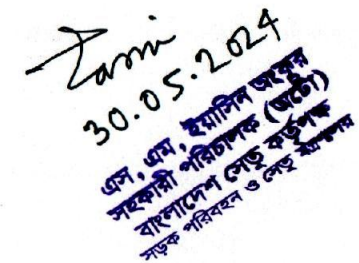 30.05.2024
এস, এম, ইয়াসিন
সহকারী পরিচালক (অটো)
বাংলাদেশ সেতু কর্তৃপক্ষ
সড়ক পরিবহন ও সেতু